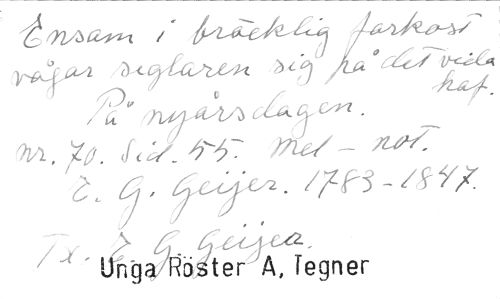 Ensam i bräcklig farkost
vågar seglaren sig på det vida
haf.
På nyårsdagen.
nr. 70. Sid. 55. Mel – not.
E. G. Geijer. 1783–1847.
Tx. E. G. Geijer.
Unga Röster A, Tegner